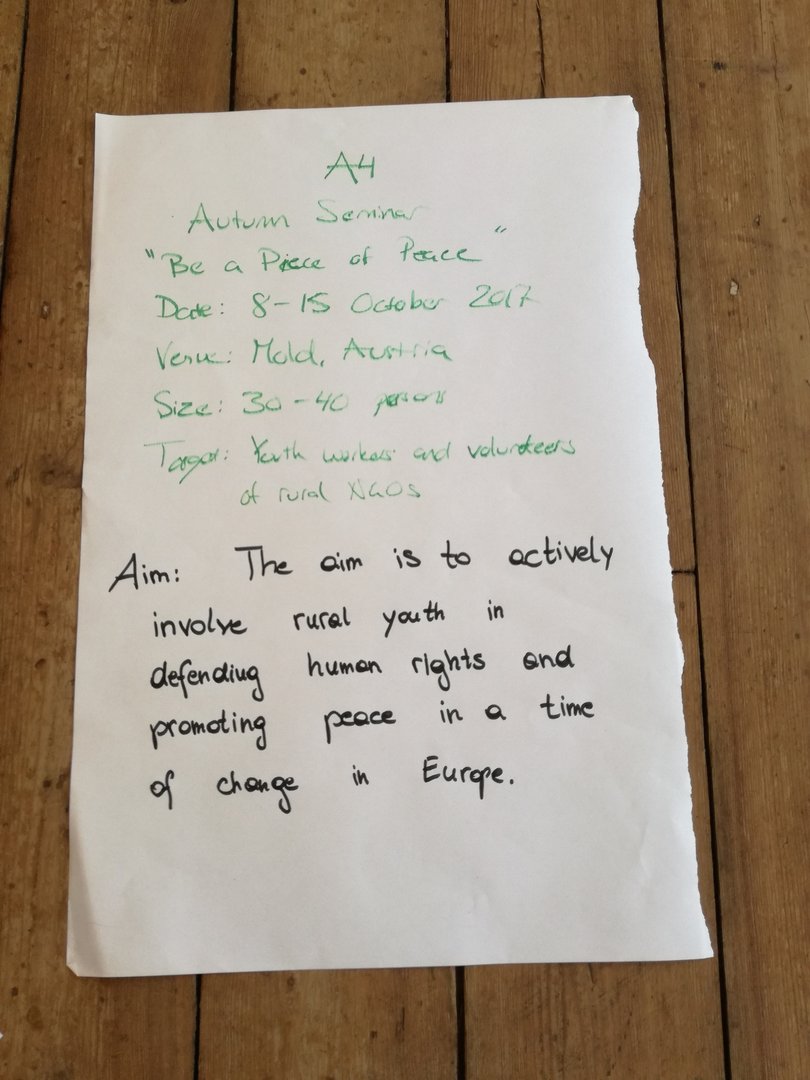 A4
Autumn Seminar
"Be a Piece of Peace"
Date: 8-15 October 2017
Venue: Mold, Austria
Size: 30-40 persons
Target: Youth workers and volunteers
of rural NGOs
Aim: The aim is to actively
involve rural youth in
defending human rights and
promoting peace in a time
of change in Europe.